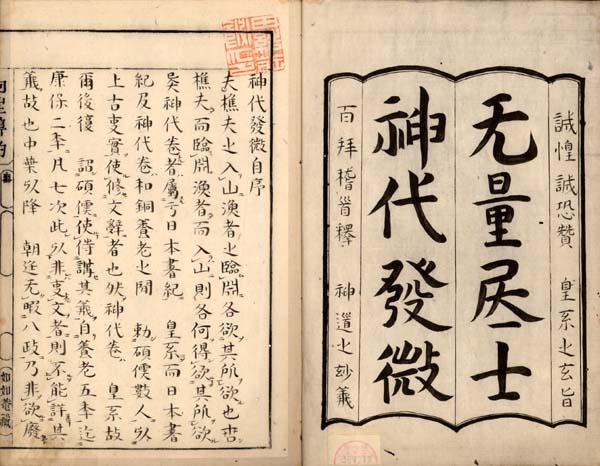 誠惶誠恐贊 皇系之玄旨
无量居士
神代發微
百拜稽首釋 神道之玅義
神代發微自序
夫樵夫之入山漁者之臨淵各欲其所欲也否
樵夫而臨淵漁者而入山則各何得欲其所欲
矣神代卷者屬亏日本書紀 皇系而日本書
紀及神代卷和銅養老之閒 勅碩儒數人以
上古叓實使修文辭者也然神代卷 皇系故
爾後復 詔碩儒使侍講其義自養老五年迄
康保二年凡七次此以非叓文者則不能詳其
義故也中葉以降 朝廷无暇八政乃非欲廢
如如菴藏